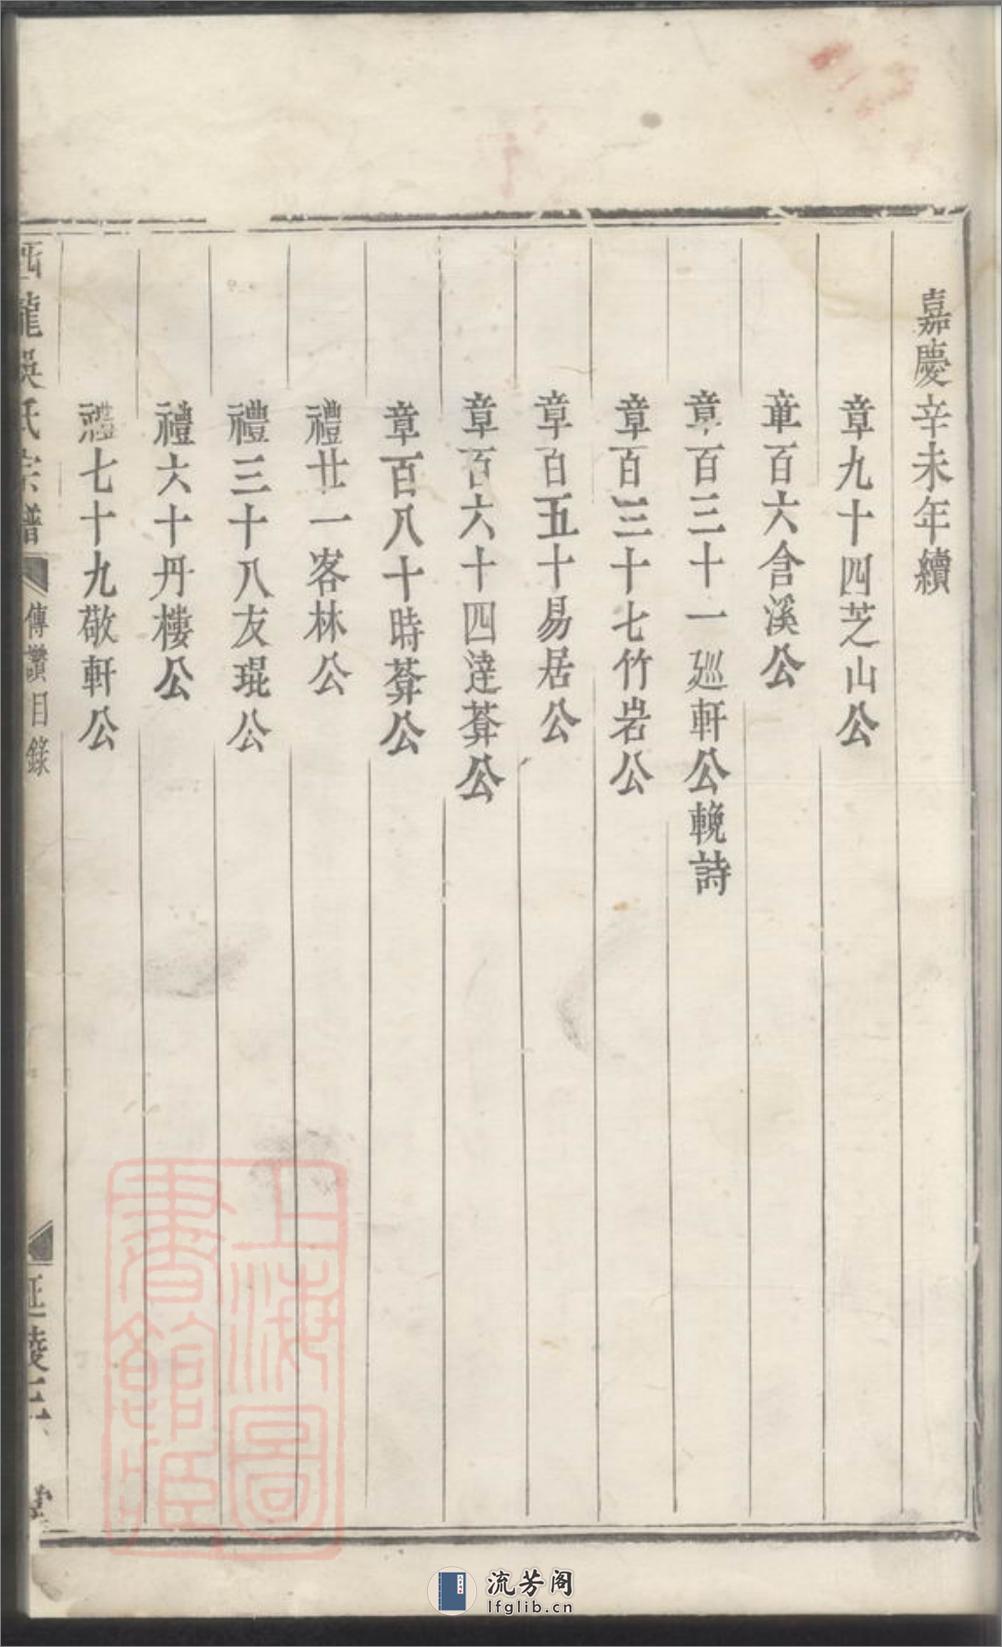 嘉慶辛未年續
章九十四芝山公
章百六含溪公
章百三十一廵軒公輓詩
章百三十七竹岩公
章百五十易居公
章百六十四逹莽公
章百八十時莽公
禮廿一客林公
禮三十八友琨公
禮六十丹樓公
禮七十九敬軒公
西龍吳氏宗譜
傳讚目錄
延陵
堂
上海圖書館藏
流芳阁
lfglib.cn